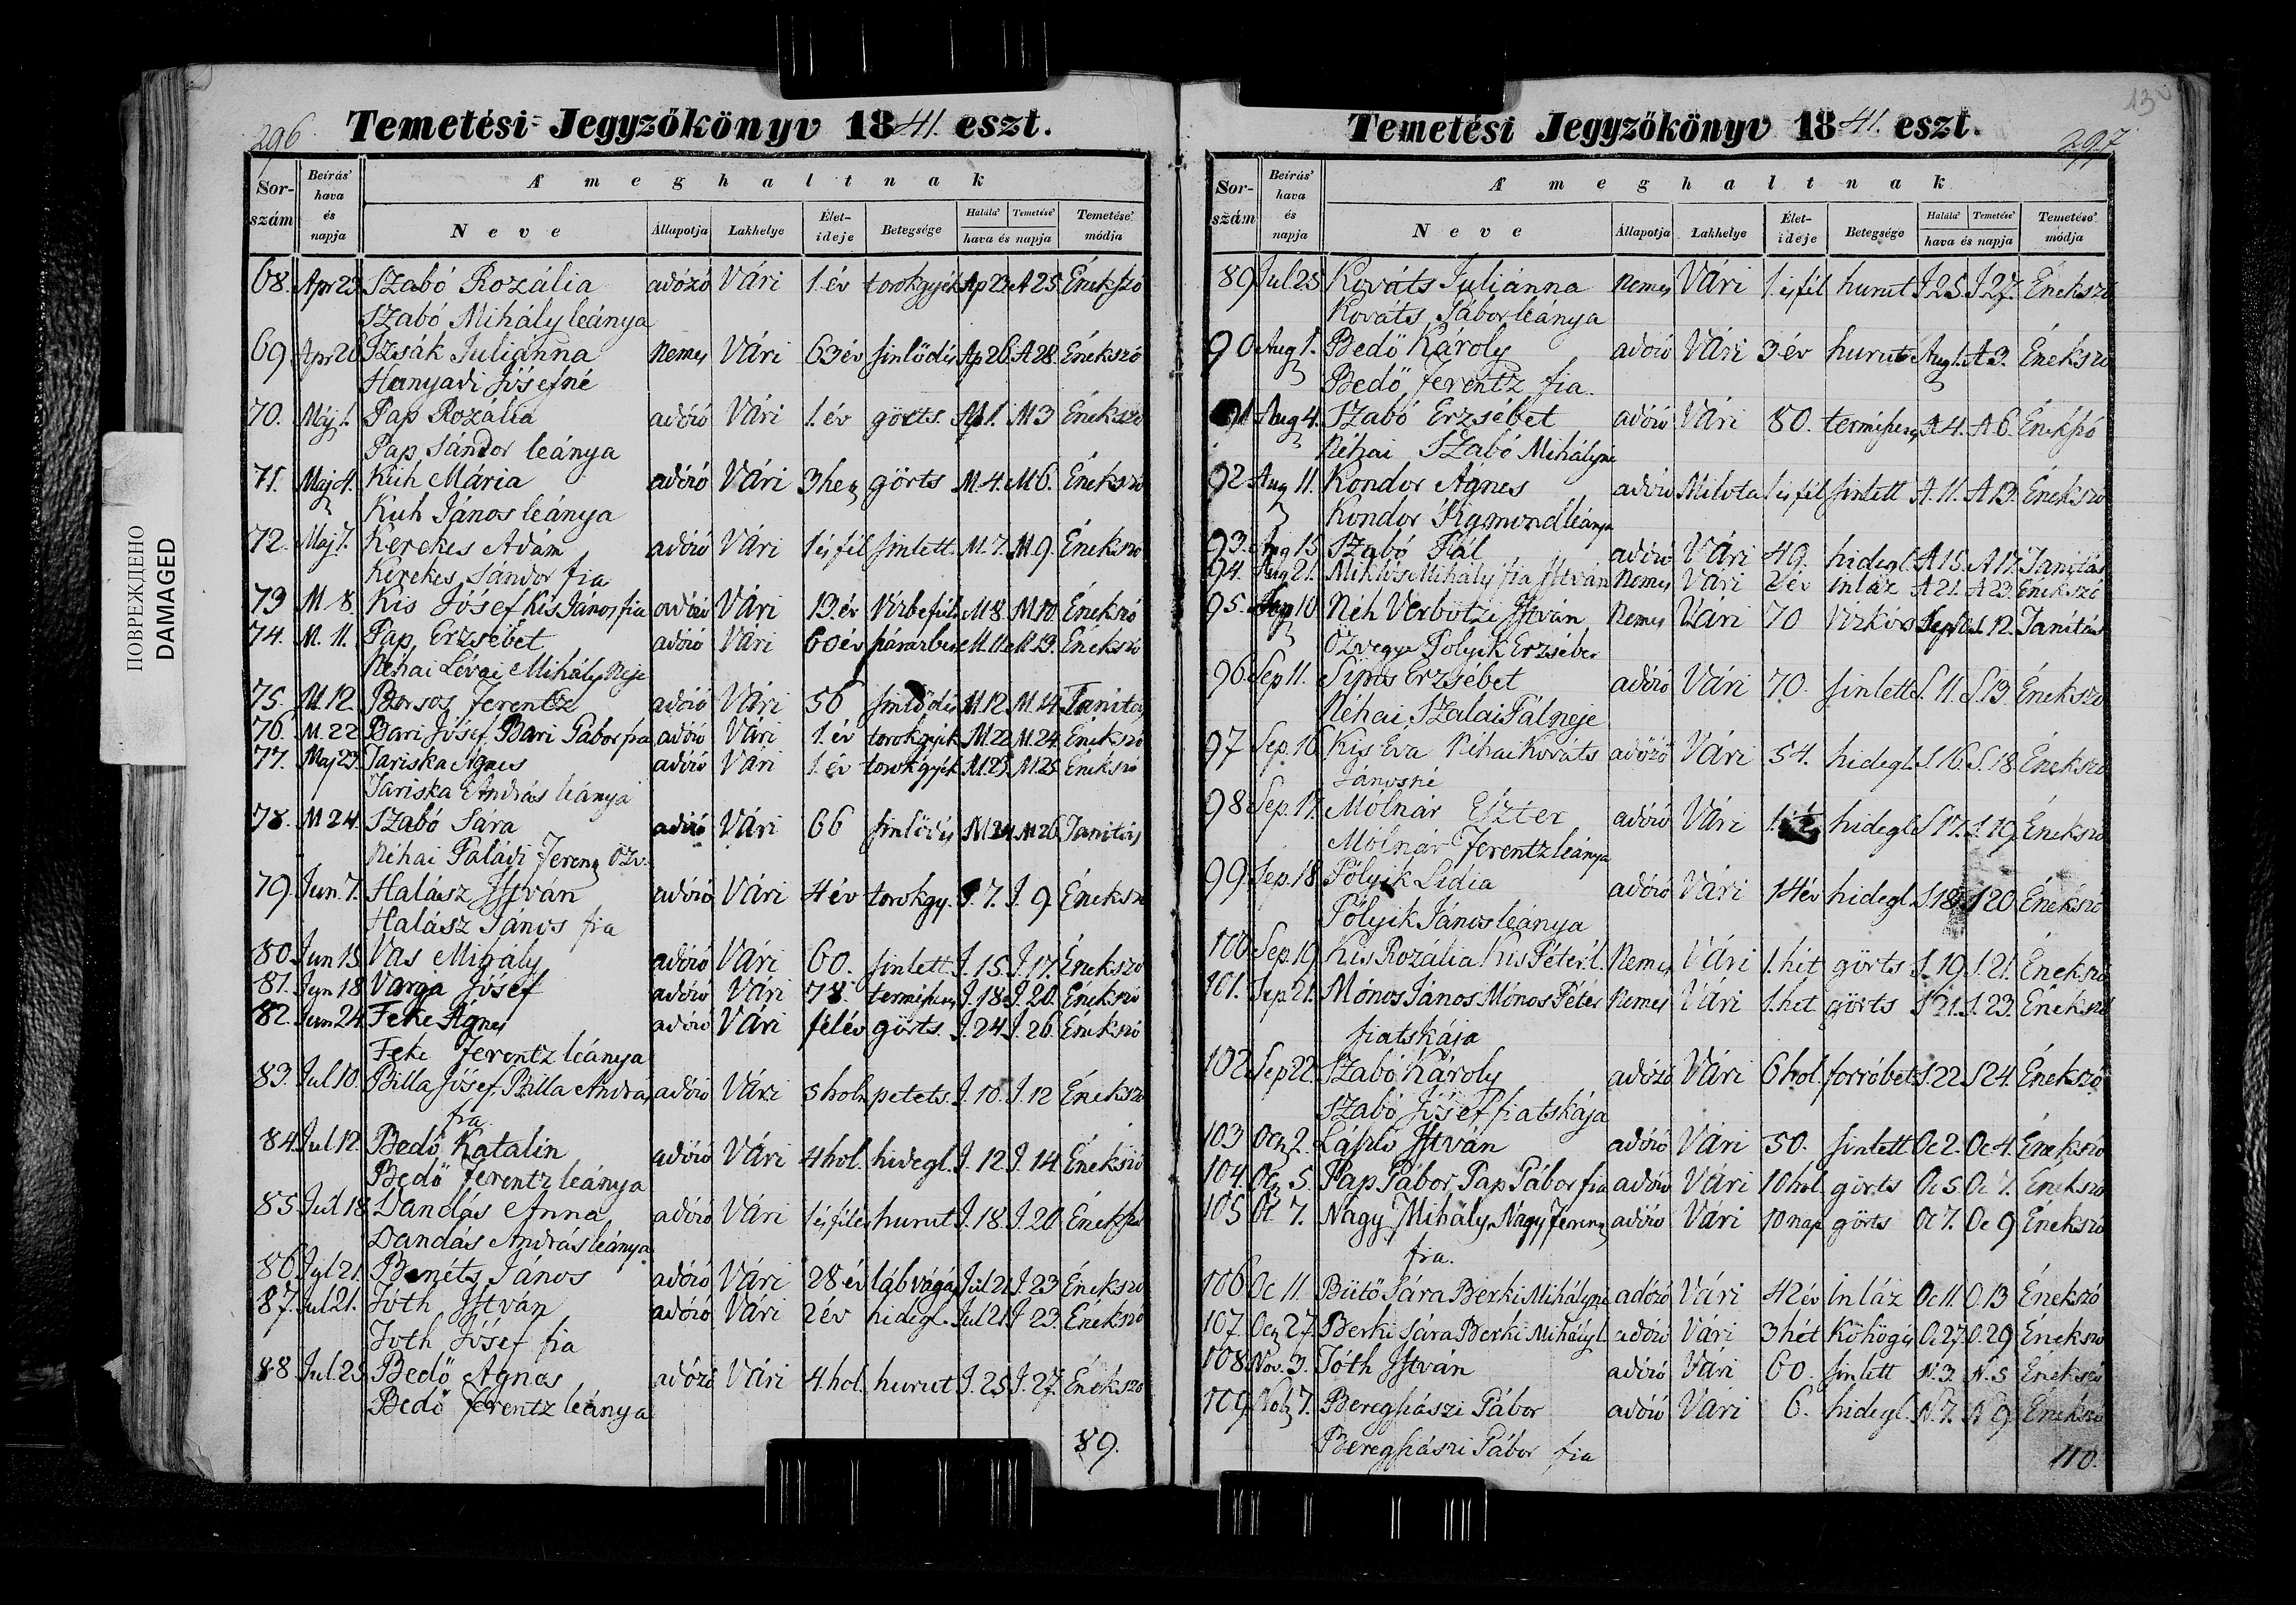 ПОВРЕЖДЕНО
DAMAGED
296
Temetési Jegyzőkönyv 1841. eszt.
Sor-szám Beírás' hava és napja A' meghaltnak
Neve Állapotja Lakhelye Élet-ideje Betegsége Halála' Temetése' hava és napja Temetése' módja
68. Apr 23 Szabó Rozália adózó Vári 1. év torokgyék Ap 23 A 25. Énekszó
Szabó Mihály leánya
69 Apr 26 Izsák Juliánna Nemes Vári 63 év sinlődés Ap 26. A 28. Énekszó
Hunyadi Jósefné
70. Máj. 1. Pap Rozália adózó Vári 1. év görts. M 1. M 3 Énekszó
Pap Sándor leánya
71. Máj 4. Kuh Mária adózó Vári 3 he görts M. 4. M 6. Énekszó
Kuh János leánya
72. Maj 7. Kerekes Adám adózó Vári 1 és fél sinlett. M. 7. M 9. Énekszó
Kerekes Sándor fia
73 M 8. Kis Jósef Kis János fia adózó Vári 13. év Vízbefúl M 8. M 10. Énekszó
74. M. 11. Pap Erzsébet adózó Vári 60 év M. 11. M 13. Énekszó
Néhai Lévai Mihály Neje
75. M. 12. Borsos Ferentz adózó Vári 56 sinlődés M. 12. M. 14. Tanitás
76. M. 22 Bari Jósef Bari Gábor fia adózó Vári 1. év torokgyék M 22 M. 24. Énekszó
77. Maj 23. Tariska Ágnes adózó Vári 1. év torokgyék M. 23. M. 25 Énekszó
Tariska András leánya
78. M 24. Szabó Sára adózó Vári 66 sinlődés M 24 M 26. Tanitás
Néhai Paládi Ferenz Özv.
79. Jun. 7. Halász István adózó Vári 4 év torokgy. J. 7. J. 9. Énekszó
Halász János fia
80. Jun 15 Vas Mihály adózó Vári 60. sinlett. J. 15. J. 17. Énekszó
81. Jun 18 Varga Jósef adózó Vári 78. termész J. 18. J. 20. Énekszó
82. Jun 24 Feke Ágnes adózó Vári fél év görts. J. 24. J. 26. Énekszó
Feke Ferentz leánya
83. Jul 10. Billa Jósef, Billa András adózó Vári 5 hol petets. J. 10. J. 12 Énekszó
fia
84. Jul 12. Bedő Katalin adózó Vári 4 hol. hidegl. J. 12 J. 14. Énekszó
Bedő Ferentz leánya
85. Jul 18. Dandás Anna adózó Vári 1 és fél év hurut J. 18. J. 20 Énekszó
Dandás András leánya
86 Jul 21. Benéts János adózó Vári 28 év láb vágás Jul 21. J. 23 Énekszó
87. Jul 21. Tóth István adózó Vári 2 év hidegl. Jul 21. J 23. Énekszó
Tóth Jósef fia
88 Jul. 25 Bedő Agnes adózó Vári 4. hol. hurut J. 25 J. 27. Énekszó
Bedő Ferentz leánya
89.
130
297
Temetési Jegyzőkönyv 1841. eszt.
Sor-szám Beírás' hava és napja A' meghaltnak
Neve Állapotja Lakhelye Élet-ideje Betegsége Halála' Temetése' hava és napja Temetése' módja
89 Jul 25 Kováts Juliánna Nemes Vári 1. és fél hurut J. 25. J. 27. Énekszó
Kováts Gábor leánya
90 Aug 1. Bedő Károly adózó Vári 3 év hurut Aug 1. A 3. Énekszó
Bedő Ferentz fia.
91 Aug 4. Szabó Erzsébet adózó Vári 80. termész A 4. A 6. Énekszó
Néhai Szabó Mihályné
92 Aug 11. Kondor Ágnes adózó Milota 1 és fél sinlett A. 11. A 13. Énekszó
Kondor Sigmond leánya
93. Aug 15 Szabó Pál adózó Vári 49. hidegl. A 15. A 17. Tanitás
94. Aug 21. Miklós Mihály fia István Nemes Vári 2 év inláz A 21. A 23. Énekszó
95. Sep 10 Néh Verbötzi István Nemes Vári 70 Vízkór Sep 10. S. 12. Tanitás
Özvegye Polyik Erzsébet
96. Sep 11. Sipos Erzsébet adózó Vári 70. sinlett S. 11. S. 13. Énekszó
Néhai Szalai Pál neje
97 Sep. 16 Kis Éva Néhai Kováts adózó Vári 54. hidegl. S 16. S. 18. Énekszó
Jánosné
98 Sep. 17. Mólnár Eszter adózó Vári 1. hidegl S 17. S 19. Énekszó
Mólnár Ferentz leánya
99 Sep. 18 Pólyik Lidia adózó Vári 14 év hidegl S 18. S 20 Énekszó
Pólyik János leánya
100 Sep. 19. Kis Rozália Kis Péter l. Nemes Vári 1. hét görts S. 19. S. 21. Énekszó
101. Sep 21. Mónos János Mónos Péter Nemes Vári 1. het görts S 21. S. 23. Énekszó
fiatskája
102 Sep 22. Szabó Károly adózó Vári 6 hol. forróbet S. 22. S 24. Énekszó
Szabó Jósef fiatskája
103 Oct 2. László István adózó Vári 50. sinlett Oc 2. Oc 4. Énekszó
104. Oct 5. Pap Gábor, Pap Gábor fia adózó Vári 10 hol. görts Oc 5. Oc 7. Énekszó
105 Oc 7. Nagy Mihály Nagy Ferenz adózó Vári 10 nap görts Oc 7. Oc 9 Énekszó
fia.
106 Oc 11. Bütő Sára Berki Mihályné adózó Vári 42 év inláz Oc 11. O. 13 Énekszó
107. Oct 27. Berki Sára Berki Mihály l. adózó Vári 3 hét Köhögés O. 27. O. 29. Énekszó
108 Nov. 3. Tóth István adózó Vári 60. sinlett N. 3. N. 5 Énekszó
109 Nov 7. Bereghászi Gábor adózó Vári 6. hidegl. N. 7. N 9. Énekszó
Bereghászi Gábor fia
110.